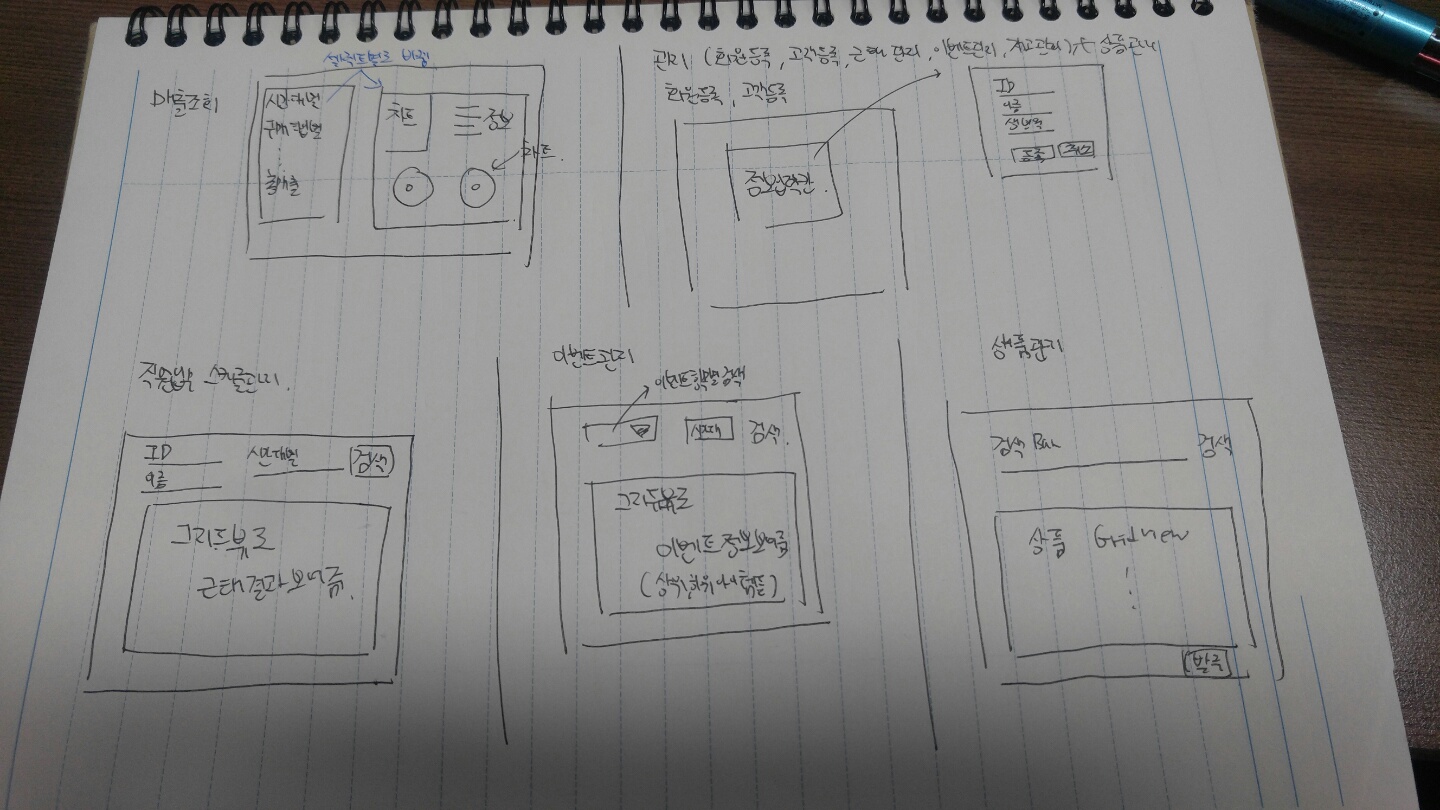 매출조회
시간대별
구매탭별
총매출
차트
정보
차트.
관리 (회원등록, 고객등록, 근태관리, 이벤트관리, 재고관리) 상품관리
회원등록, 고객등록
정보입력칸.
ID
이름
생년월일
등록 취소
스케줄관리.
ID
이름
시간대별
검색
그리드뷰로
근태결과보여줌.
이벤트관리
이벤트항목별검색
시간대
검색.
그리드뷰로
이벤트정보보여줌
상품관리
검색 Bar
검색
상품 Gridview
발주